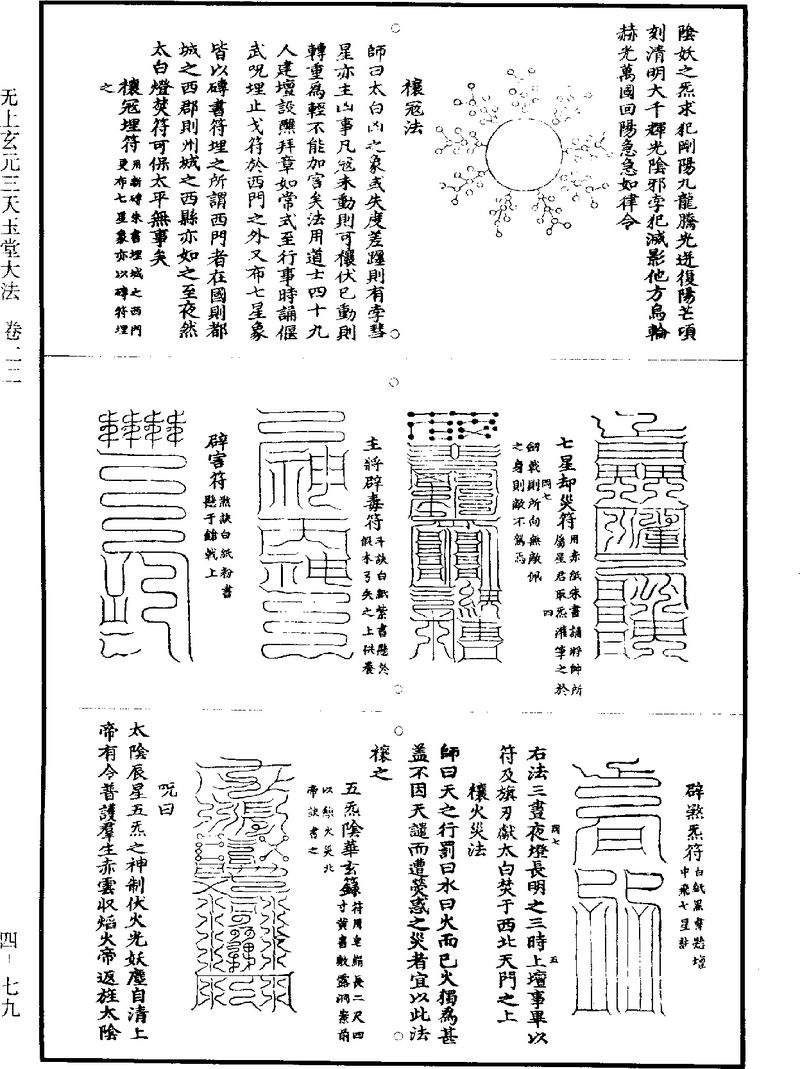 陰妖之炁求犯剛陽九龍騰光迸復陽芒頃
刻清明大千輝光陰邪孛犯滅影他方烏輪
赫光萬國回陽急急如律令
禳冦法
師曰太白凶之象或失度差躔則有孛彗
星亦主凶事凡冦未動則可禳伏已動則
轉重為輕不能加害矣法用道士四十九
人建壇設醮拜章如常式至行事時誦偃
武呪埋止戈符於西門之外又布七星象
皆以磚書符埋之所謂西門者在國則都
城之西郡則州城之西縣亦如之至夜然
太白燈焚符可保太平無事矣
禳冦埋符 用新磚朱書埋城之西門
更布七星象亦以磚符埋
之
七星却災符 用赤紙朱書誦將帥所
屬星君取炁灌筆之於
劒戟則所向無敵佩
之身則敵不篤焉
四七
四
主將辟毒符 斗訣白紙紫書懸於
假木弓矢之上供養
辟害符 煞訣白紙粉書
懸于鎗戟上
辟煞炁符 白紙黑書踏壇
中飛七星訣
右法三晝夜燈長明之三時上壇事畢以
四七
五
符及旗刃獻太白焚于西北天門之上
禳火災法
師曰天之行罰曰水曰火而已火獨為甚
蓋不因天譴而遭熒惑之災者宜以此法
禳之
五炁陰華玄籙 符用皂絹長二尺四
寸黃書敷露洞案前
以絲火災北
帝訣書之
呪曰
太陰辰星五炁之神制伏火光妖塵自清上
帝有令普護羣生赤雲収焰火帝返旌太陰
无上玄元三天玉堂大法 卷二二
四-七九